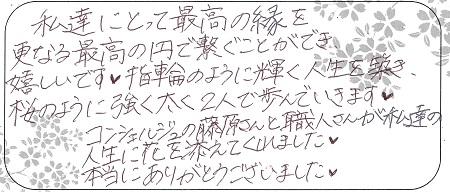 私達にとって最高の縁を
更なる最高の円で繋ぐことができ
嬉しいです♥指輪のように輝く人生を築き、
桜のように強く太く2人で歩んでいきます♥
コンシェルジュの藤原さんと職人さんが私達の
人生に花を添えてくれました♥
本当にありがとうございました♥